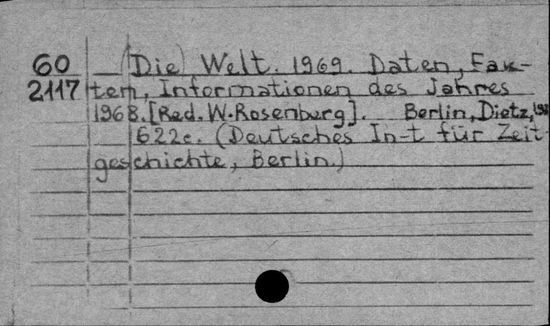 60 (Die) Welt. 1969. Daten, Fak-
2117 ten, Informationen des Jahres
1968. [Red. W. Rosenburg]. Berlin, Dietz,
622c. (Deutsches In-t für Zeit
geschichte, Berlin.)